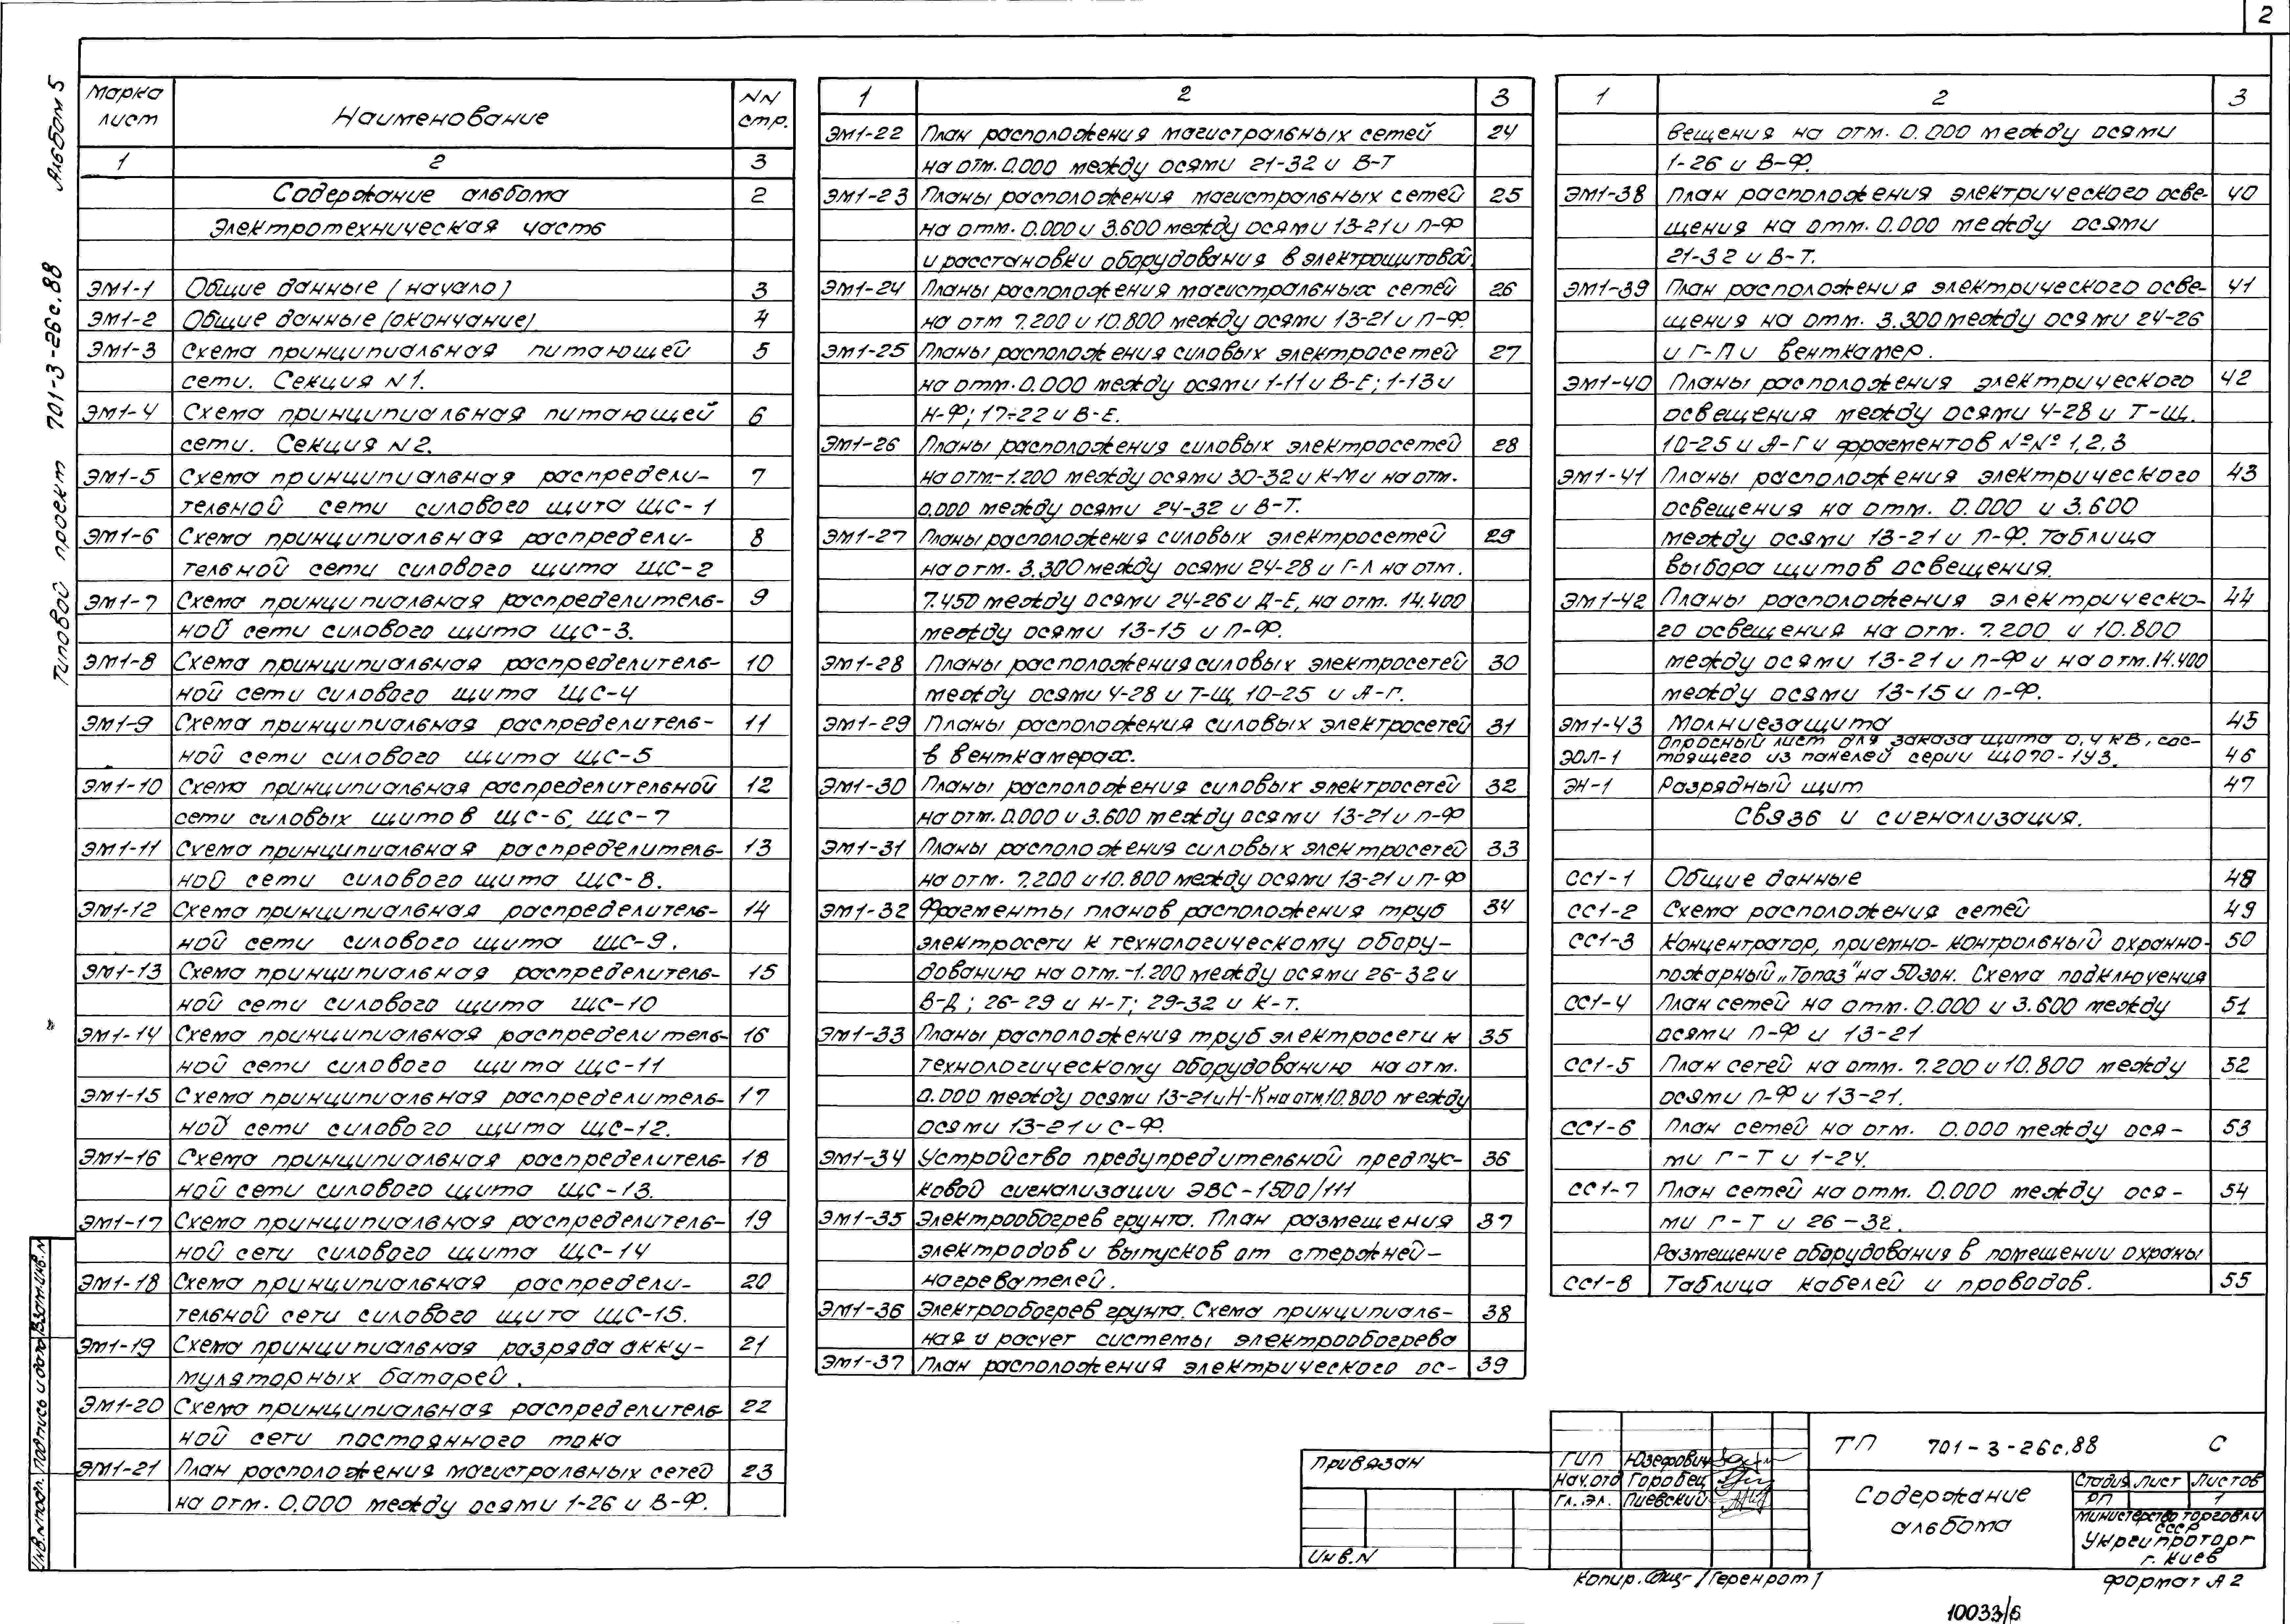 2
Альбом 5
Типовой проект 701-3-26с.88
Марка лист Наименование NN стр.
1 2 3
Содержание альбома 2
Электротехническая часть
ЭМ1-1 Общие данные (начало) 3
ЭМ1-2 Общие данные (окончание) 4
ЭМ1-3 Схема принципиальная питающей 5
сети. Секция N1.
ЭМ1-4 Схема принципиальная питающей 6
сети. Секция N2.
ЭМ1-5 Схема принципиальная распредели- 7
тельной сети силового щита ЩС-1
ЭМ1-6 Схема принципиальная распредели- 8
тельной сети силового щита ЩС-2
ЭМ1-7 Схема принципиальная распределитель- 9
ной сети силового щита ЩС-3.
ЭМ1-8 Схема принципиальная распределитель- 10
ной сети силового щита ЩС-4
ЭМ1-9 Схема принципиальная распределитель- 11
ной сети силового щита ЩС-5
ЭМ1-10 Схема принципиальная распределительной 12
сети силовых щитов ЩС-6, ЩС-7
ЭМ1-11 Схема принципиальная распределитель- 13
ной сети силового щита ЩС-8.
ЭМ1-12 Схема принципиальная распределитель- 14
ной сети силового щита ЩС-9.
ЭМ1-13 Схема принципиальная распределитель- 15
ной сети силового щита ЩС-10
ЭМ1-14 Схема принципиальная распределитель- 16
ной сети силового щита ЩС-11
ЭМ1-15 Схема принципиальная распределитель- 17
ной сети силового щита ЩС-12.
ЭМ1-16 Схема принципиальная распределитель- 18
ной сети силового щита ЩС-13.
ЭМ1-17 Схема принципиальная распределитель- 19
ной сети силового щита ЩС-14
ЭМ1-18 Схема принципиальная распредели- 20
тельной сети силового щита ЩС-15.
ЭМ1-19 Схема принципиальная разряда акку- 21
муляторных батарей.
ЭМ1-20 Схема принципиальная распределитель- 22
ной сети постоянного тока
ЭМ1-21 План расположения магистральных сетей 23
на отм. 0.000 между осями 1-26 и В-Ф.
1 2 3
ЭМ1-22 План расположения магистральных сетей 24
на отм. 0.000 между осями 21-32 и В-Т
ЭМ1-23 Планы расположения магистральных сетей 25
на отм. 0.000 и 3.600 между осями 13-21 и П-Ф
и расстановки оборудования в электрощитовой.
ЭМ1-24 Планы расположения магистральных сетей 26
на отм 7.200 и 10.800 между осями 13-21 и П-Ф.
ЭМ1-25 Планы расположения силовых электросетей 27
на отм. 0.000 между осями 1-11 и В-Е; 1-13 и
Н-Ф; 17-22 и В-Е.
ЭМ1-26 Планы расположения силовых электросетей 28
на отм-1.200 между осями 30-32 и К-М и на отм.
0.000 между осями 24-32 и В-Т.
ЭМ1-27 Планы расположения силовых электросетей 29
на отм. 3.300 между осями 24-28 и Г-Л на отм.
7.450 между осями 24-26 и Д-Е, на отм. 14.400
между осями 13-15 и П-Ф.
ЭМ1-28 Планы расположения силовых электросетей 30
между осями 4-28 и Т-Щ, 10-25 и А-Г.
ЭМ1-29 Планы расположения силовых электросетей 31
в венткамерах.
ЭМ1-30 Планы расположения силовых электросетей 32
на отм. 0.000 и 3.600 между осями 13-21 и П-Ф
ЭМ1-31 Планы расположения силовых электросетей 33
на отм. 7.200 и 10.800 между осями 13-21 и П-Ф
ЭМ1-32 Фрагменты планов расположения труб 34
электросети к технологическому обору-
дованию на отм.-1.200 между осями 26-32 и
В-Д; 26-29 и Н-Т; 29-32 и К-Т.
ЭМ1-33 Планы расположения труб электросети к 35
технологическому оборудованию на отм.
0.000 между осями 13-21 и Н-К на отм.10.800 между
осями 13-21 и С-Ф.
ЭМ1-34 Устройство предупредительной предпус- 36
ковой сигнализации ЭВС-1500/111
ЭМ1-35 Электрообогрев грунта. План размещения 37
электродов и выпусков от стержней-
нагревателей.
ЭМ1-36 Электрообогрев грунта. Схема принципиаль- 38
ная и расчет системы электрообогрева
ЭМ1-37 План расположения электрического ос- 39
1 2 3
вещения на отм. 0.000 между осями
1-26 и В-Ф.
ЭМ1-38 План расположения электрического осве- 40
щения на отм. 0.000 между осями
21-32 и В-Т.
ЭМ1-39 План расположения электрического осве- 41
щения на отм. 3.300 между осями 24-26
и Г-Л и венткамер.
ЭМ1-40 Планы расположения электрического 42
освещения между осями 4-28 и Т-Щ.
10-25 и А-Г и фрагментов №№ 1,2,3
ЭМ1-41 Планы расположения электрического 43
освещения на отм. 0.000 и 3.600
между осями 13-21 и П-Ф. Таблица
выбора щитов освещения.
ЭМ1-42 Планы расположения электрическо- 44
го освещения на отм. 7.200 и 10.800
между осями 13-21 и П-Ф и на отм.14.400
между осями 13-15 и П-Ф.
ЭМ1-43 Молниезащита 45
Опросный лист для заказа щита 0,4 кВ, сос-
ЭОЛ-1 тоящего из панелей серии ЩО70-1У3. 46
ЭН-1 Разрядный щит 47
Связь и сигнализация.
СС1-1 Общие данные 48
СС1-2 Схема расположения сетей 49
СС1-3 Концентратор, приемно-контрольный охранно- 50
пожарный „Топаз" на 50 зон. Схема подключения
СС1-4 План сетей на отм. 0.000 и 3.600 между 51
осями П-Ф и 13-21
СС1-5 План сетей на отм. 7.200 и 10.800 между 52
осями П-Ф и 13-21.
СС1-6 План сетей на отм. 0.000 между ося- 53
ми Г-Т и 1-24.
СС1-7 План сетей на отм. 0.000 между ося- 54
ми Г-Т и 26-32.
Размещение оборудования в помещении охраны
СС1-8 Таблица кабелей и проводов. 55
Инв.N подл. Подпись и дата Взам.инв.N
Привязан
Инв.N
ГИП Юзефович
Нач.отд Горобец
Гл.эл. Пиевский
ТП 701-3-26с.88 С
Содержание
альбома
Стадия Лист Листов
РП 1
Министерство торговли
СССР
Укргипроторг
г. Киев
Копир. /Геренрот/
Формат А2
10033/6